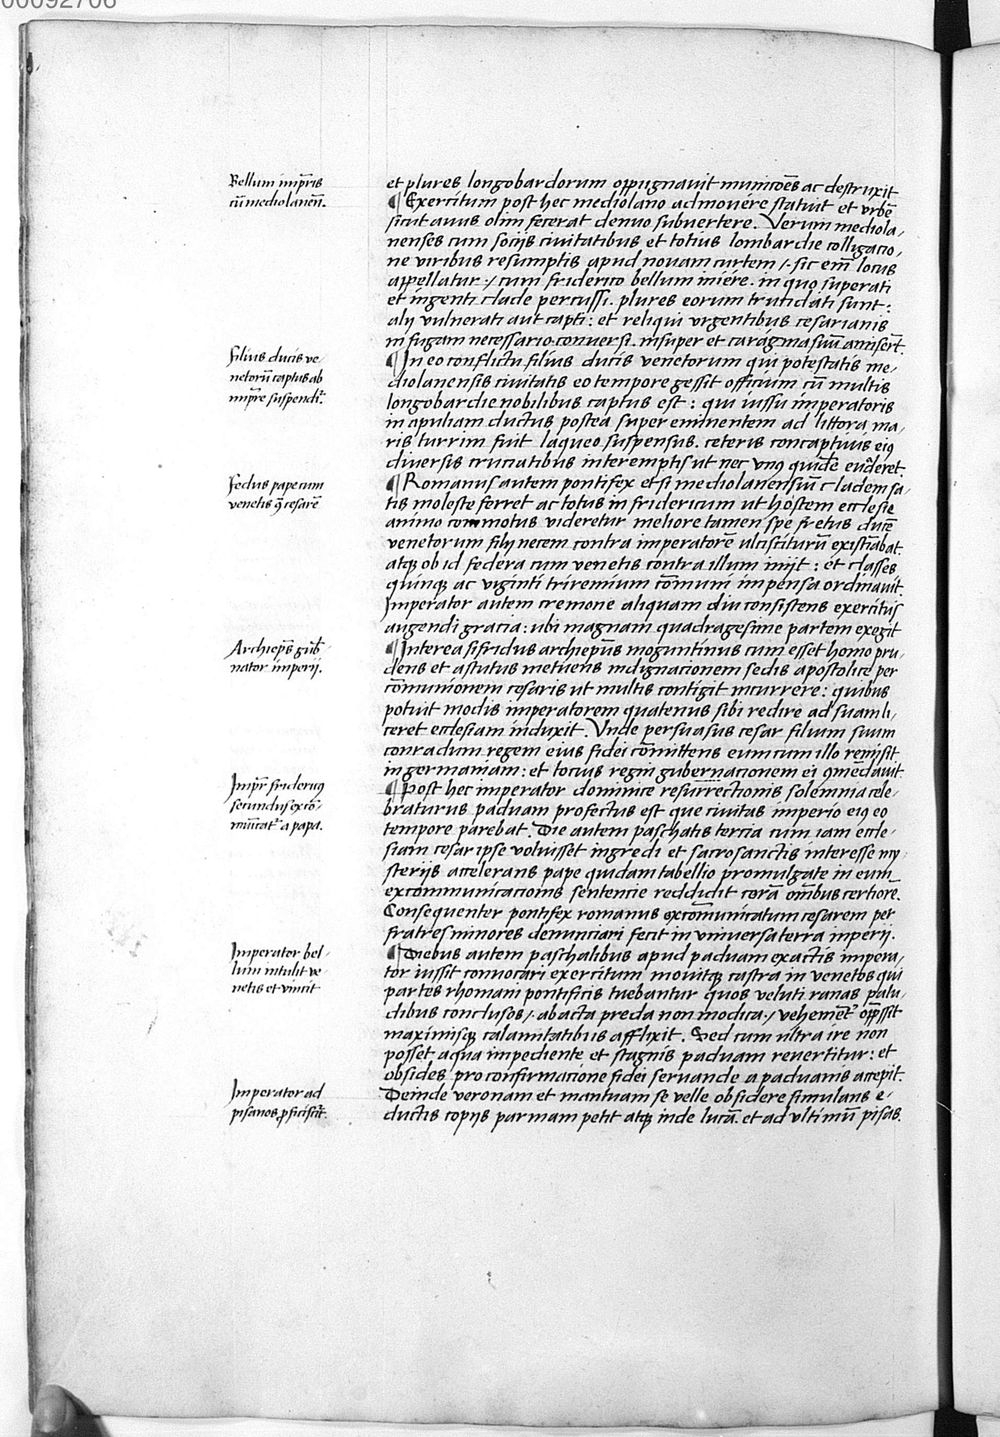 00092706
Bellum impr̄is
cū mediolanēn̄.
et plures longobardorum oppugnavit municōes ac destruxit
¶ Exercitum post hec mediolano admovere statuit et urbē
sicut avus olim fecerat denuo subvertere. Verum mediola,
nenses cum socijs civitatibus et totius lombardie colligacio,
ne viribus resumptis apud novam curtem /. sic em̄ locus
appellatur ./ cum friderico bellum iniere. in quo superati
et ingenti clade percussi. plures eorum trucidati sunt:
alij vulnerati aut capti: et reliqui urgentibus cesarianis
in fugam necessario conversi. insuper et caragma suū amisert̄.
filius ducis ve,
netorū captus ab
impr̄e suspendit̄.
¶ In eo conflictu filius ducis venetorum qui potestatis me,
diolanensis civitatis eo tempore gessit officium cū multis
longobardie nobilibus captus est: qui iussu imperatoris
in apuliam ductus postea super eminentem ad littora ma,
ris turrim fuit laqueo suspensus. ceteris concaptivis eiꝰ
diversis cruciatibus interemptis ut nec unꝰ quidē evaderet.
fedus pape cum
venetis ꝯ cesarē
¶ Romanus autem pontifex et si mediolanensiū cladem sa,
tis moleste ferret ac totus in fridericum ut hostem ecclesie
animo commotus videretur meliore tamen spe fretus ducē
venetorum filij necem contra imperatorē ulcisciturū existīabat.
atqꝫ ob id federa cum venetis contra illum inijt: et classes
quinqꝫ ac viginti triremium cōmuni impensa ordinavit.
Imperator autem cremone aliquam diu consistens exercitus
augendi gracia: ubi magnam quadragesime partem exegit
Archiep̄s gub̄,
nator imperij.
¶ Interea sifridus archiepūs moguntinus cum esset homo pru,
dens et astutus metuens indignacionem sedis apostolice per
cōmunionem cesaris ut multis contigit incurrere: quibus
potuit modis imperatorem quatenus sibi redire ad suam li,
ceret ecclesiam induxit. Unde persuasus cesar filium suum
conradum regem eius fidei cōmittens eum cum illo remisit
in germaniam: et tocius regni gubernacionem ei ꝯmēdavit.
Impr̄ fridericꝰ
secundus excō,
municat̄ a papa.
¶ Post hec imperator dominice resurrectionis solemnia cele,
braturus paduam profectus est que civitas imperio eiꝰ eo
tempore parebat. Die autem paschatis tercia cum iam eccle,
siam cesar ipse voluisset ingredi et sacrosanctis interesse my,
sterijs accelerans pape quidam tabellio promulgate in eum
excommunicacionis sentencie reddidit corā om̄ibus certiorē.
Consequenter pontifex romanus excōmunicatum cesarem per
fratres minores denunciari fecit in universa terra inperij.
Imperator bel,
lum intulit ve
netis et vincit
¶ Diebus autem paschalibus apud paduam exactis impera,
tor iussit convocari exercitum movitqꝫ castra in venetos qui
partes rhomani pontificis tuebantur quos veluti ranas palu,
dibus conclusos /. abacta preda non modica ./ vehement̄ opp̄ssit
maximisqꝫ calamitatibus afflixit. Sed cum ultra ire non
posset aqua impediente et stagnis paduam revertitur: et
obsides pro confirmacione fidei servande a paduanis accepit.
Imperator ad
pisanos ꝓficiscit̄.
Deinde veronam et mantuam se velle obsidere simulans e,
ductis copijs parmam petit atqꝫ inde lucā. et ad ultimū pisas.